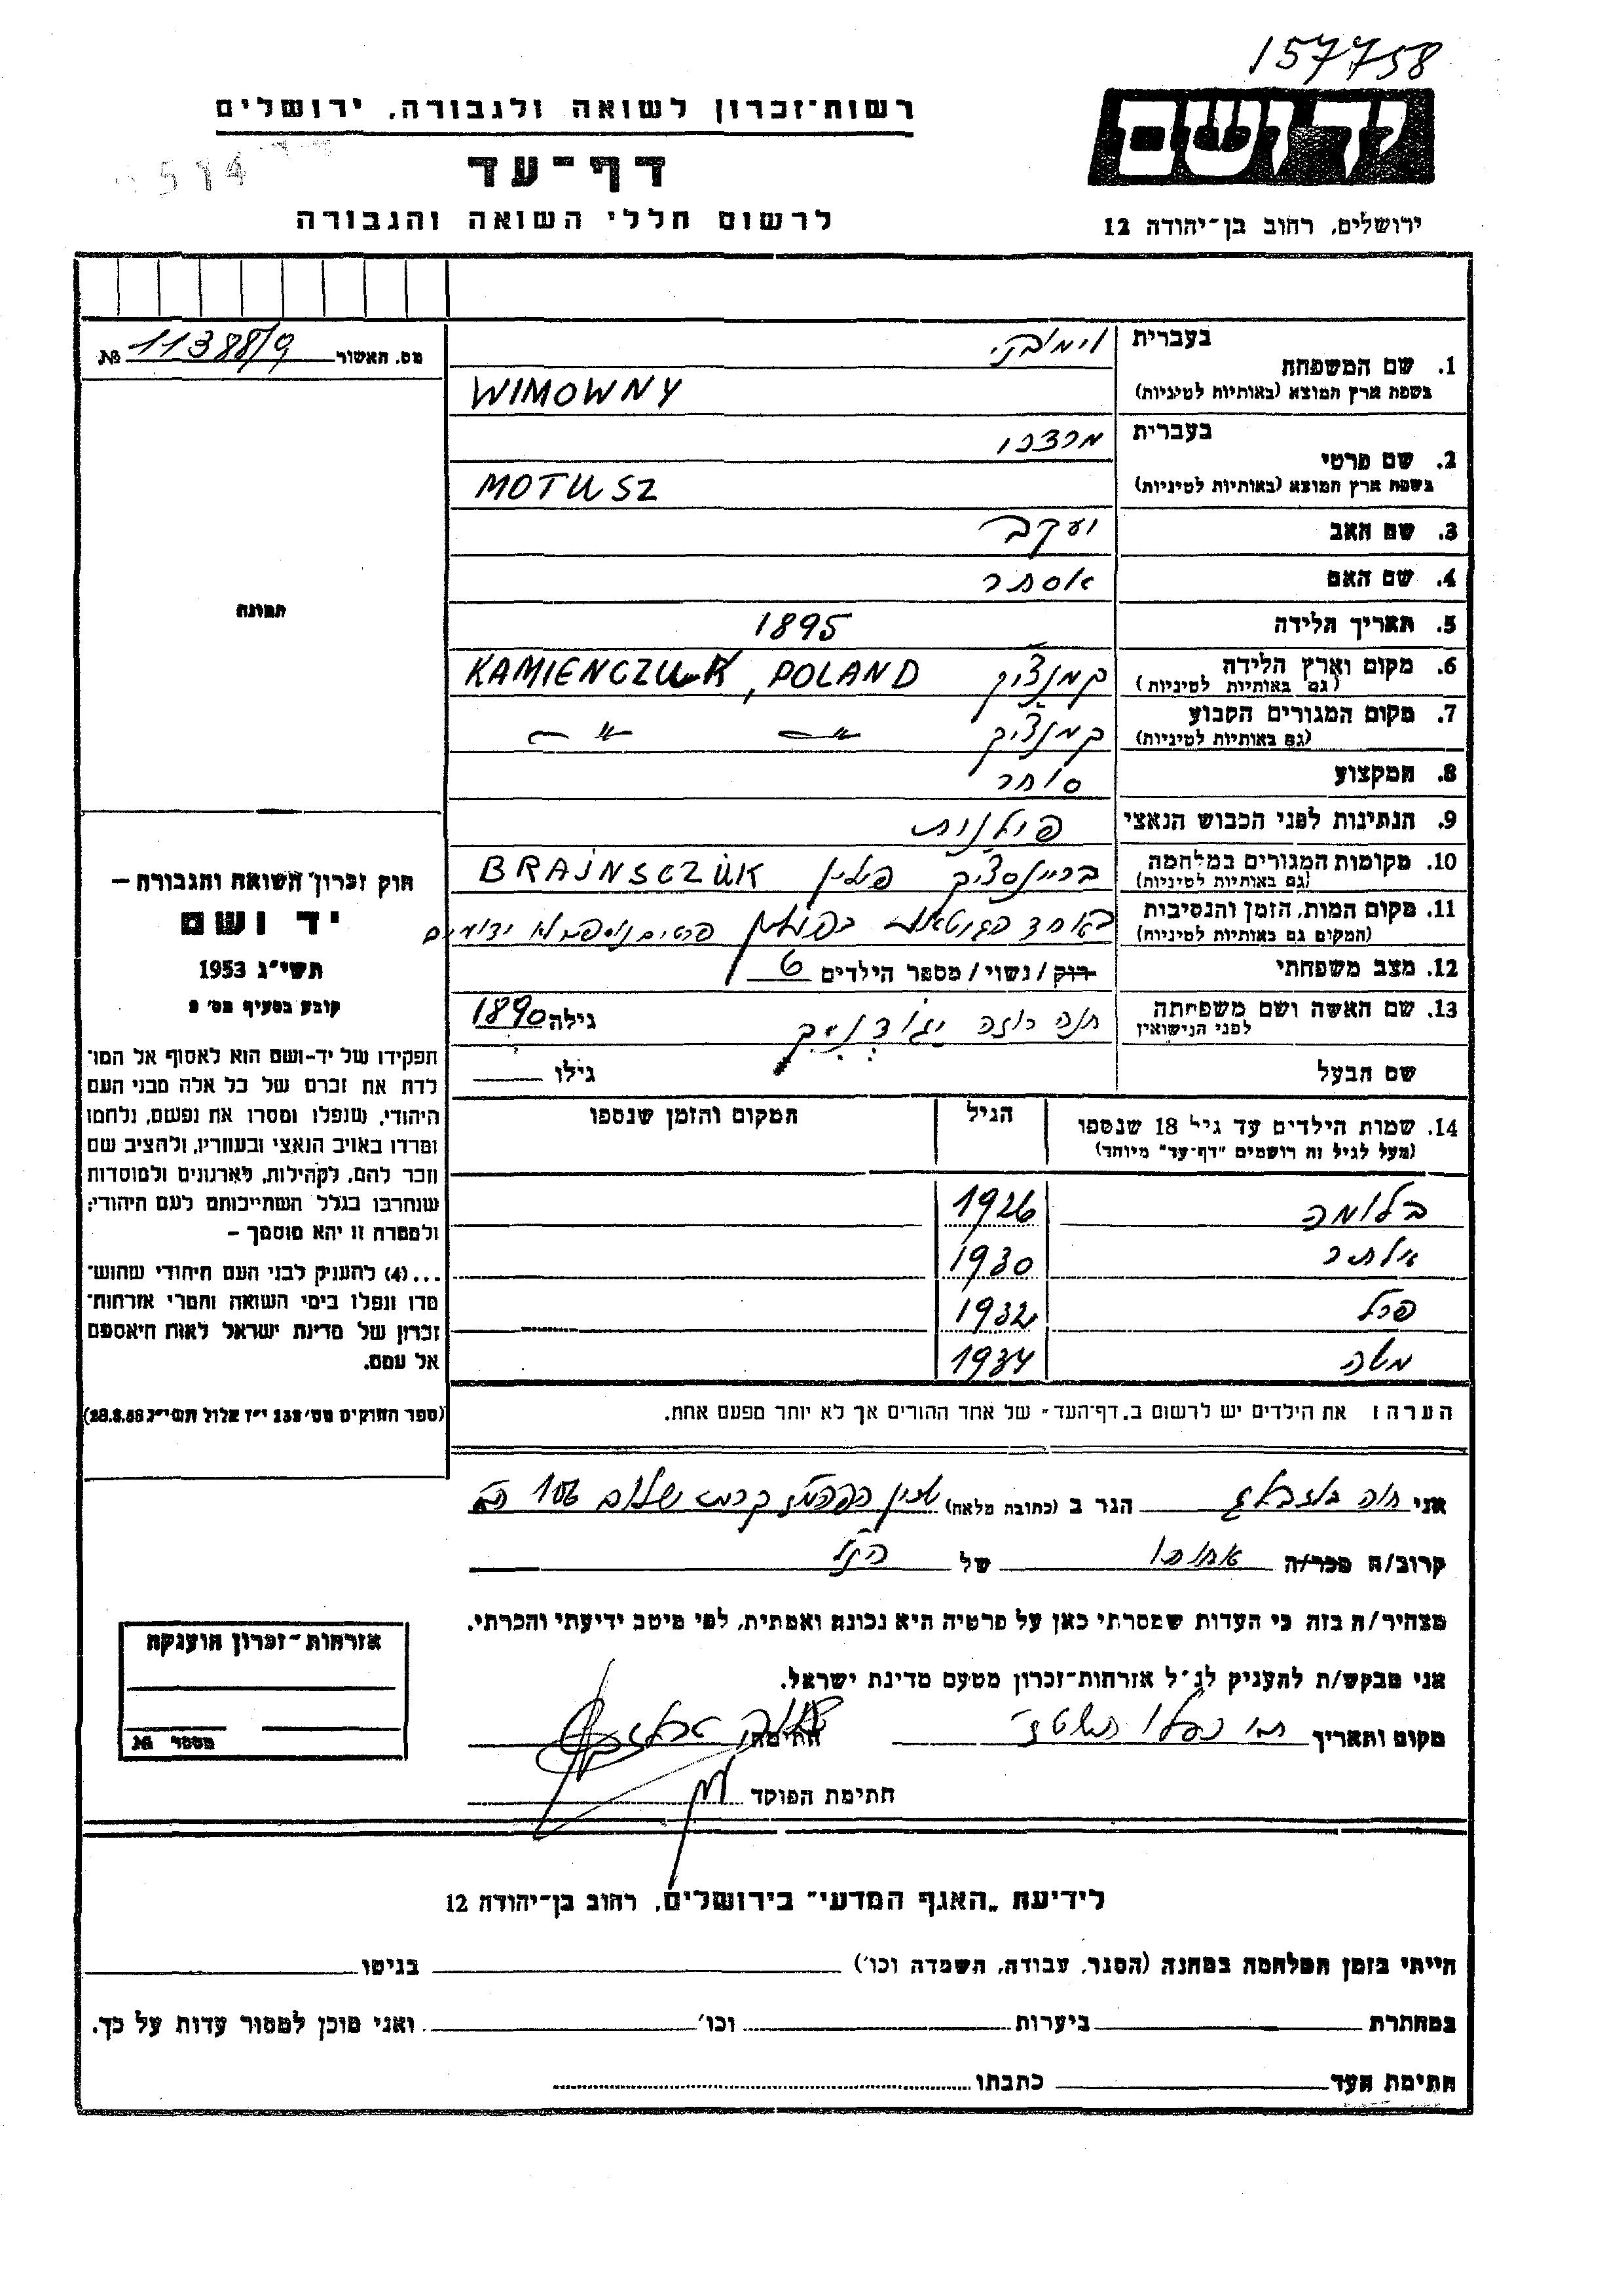 157758
רשות-זכרון לשואה ולגבורה, ירושלים
יד ושם
דף-עד
לרשום חללי השואה והגבורה
ירושלים, רחוב בן-יהודה 12
מס. האשור 11388/9 №
תמונה
1. שם המשפחה
בעברית
בשפת ארץ המוצא (באותיות לטיניות) WIMOWNY
2. שם פרטי
בעברית מרדכי
בשפת ארץ המוצא (באותיות לטיניות) MOTUSZ
3. שם האב יעקב
4. שם האם אסתר
5. תאריך הלידה 1895
6. מקום וארץ הלידה (גם באותיות לטיניות) קמנצ'יק KAMIENCZUK, POLAND
7. מקום המגורים הקבוע (גם באותיות לטיניות) קמנצ'יק -"- -"-
8. המקצוע סוחר
9. הנתינות לפני הכבוש הנאצי פולנית
10. מקומות המגורים במלחמה (גם באותיות לטיניות) פולין BRAINSCZUK
11. מקום המות, הזמן והנסיבות (המקום גם באותיות לטיניות) באחד הגיטאות בפולין פרטים נוספים לא ידועים
12. מצב משפחתי רווק / נשוי / מספר הילדים 6
13. שם האשה ושם משפחתה לפני הנישואין חנה רוזה גילה 1890
שם הבעל גילו
14. שמות הילדים עד גיל 18 שנספו (מעל לגיל זה רושמים "דף-עד" מיוחד) הגיל המקום והזמן שנספו
בלומה 1926
אסתר 1930
פרל 1932
משה 1934
הערה: את הילדים יש לרשום ב"דף-העד" של אחד ההורים אך לא יותר מפעם אחת.
חוק זכרון השואה והגבורה –
יד ושם
תשי"ג 1953
קובע בסעיף מס' 2
תפקידו של יד-ושם הוא לאסוף אל המו־
לדת את זכרם של כל אלה מבני העם
היהודי, שנפלו ומסרו את נפשם, נלחמו
ומרדו באויב הנאצי ובעוזריו, ולהציב שם
וזכר להם, לקהילות, לארגונים ולמוסדות
שנחרבו בגלל השתייכותם לעם היהודי;
ולמטרה זו יהא מוסמך –
...(4) להעניק לבני העם היהודי שהוש־
מדו ונפלו בימי השואה והמרי אזרחות־
זכרון של מדינת ישראל לאות היאספם
אל עמם.
(ספר החוקים מס' 132 י"ז אלול תשי"ג 28.8.53)
אני חיה הגר ב (כתובת מלאה) שלום 106
קרוב/ה מכר/ה אחותו של הנ"ל
מצהיר/ה בזה כי העדות שמסרתי כאן על פרטיה היא נכונה ואמתית, לפי מיטב ידיעתי והכרתי.
אני מבקש/ת להעניק לנ"ל אזרחות-זכרון מטעם מדינת ישראל.
מקום ותאריך חתימה
חתימת הפוקד
אזרחות-זכרון הוענקה
מספר №
לידיעת "האגף המדעי" בירושלים, רחוב בן-יהודה 12
הייתי בזמן המלחמה במחנה (הסגר, עבודה, השמדה וכו') בגיטו
במחתרת ביערות וכו' ואני מוכן למסור עדות על כך.
חתימת העד כתבתו